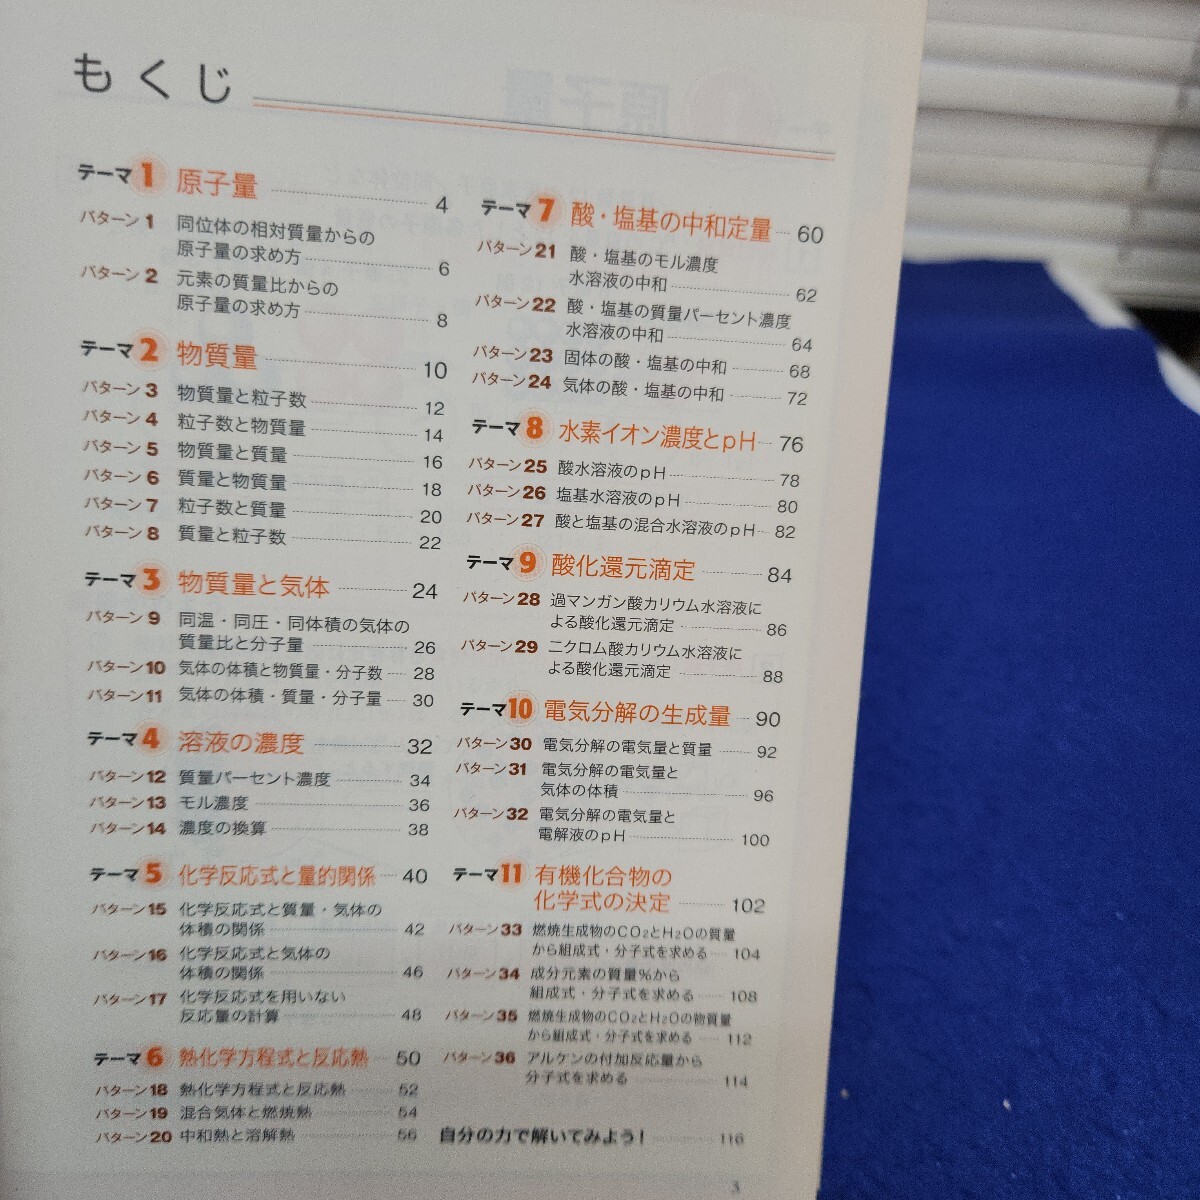 もくじ
テーマ1 原子量 4
パターン1 同位体の相対質量からの
原子量の求め方 6
パターン2 元素の質量比からの
原子量の求め方 8
テーマ2 物質量 10
パターン3 物質量と粒子数 12
パターン4 粒子数と物質量 14
パターン5 物質量と質量 16
パターン6 質量と物質量 18
パターン7 粒子数と質量 20
パターン8 質量と粒子数 22
テーマ3 物質量と気体 24
パターン9 同温・同圧・同体積の気体の
質量比と分子量 26
パターン10 気体の体積と物質量・分子数 28
パターン11 気体の体積・質量・分子量 30
テーマ4 溶液の濃度 32
パターン12 質量パーセント濃度 34
パターン13 モル濃度 36
パターン14 濃度の換算 38
テーマ5 化学反応式と量的関係 40
パターン15 化学反応式と質量・気体の
体積の関係 42
パターン16 化学反応式と気体の
体積の関係 46
パターン17 化学反応式を用いない
反応量の計算 48
テーマ6 熱化学方程式と反応熱 50
パターン18 熱化学方程式と反応熱 52
パターン19 混合気体と燃焼熱 54
パターン20 中和熱と溶解熱 56
テーマ7 酸・塩基の中和定量 60
パターン21 酸・塩基のモル濃度
水溶液の中和 62
パターン22 酸・塩基の質量パーセント濃度
水溶液の中和 64
パターン23 固体の酸・塩基の中和 68
パターン24 気体の酸・塩基の中和 72
テーマ8 水素イオン濃度とpH 76
パターン25 酸水溶液のpH 78
パターン26 塩基水溶液のpH 80
パターン27 酸と塩基の混合水溶液のpH 82
テーマ9 酸化還元滴定 84
パターン28 過マンガン酸カリウム水溶液に
よる酸化還元滴定 86
パターン29 ニクロム酸カリウム水溶液に
よる酸化還元滴定 88
テーマ10 電気分解の生成量 90
パターン30 電気分解の電気量と質量 92
パターン31 電気分解の電気量と
気体の体積 96
パターン32 電気分解の電気量と
電解液のpH 100
テーマ11 有機化合物の
化学式の決定 102
パターン33 燃焼生成物のCO₂とH₂Oの質量
から組成式・分子式を求める 104
パターン34 成分元素の質量%から
組成式・分子式を求める 108
パターン35 燃焼生成物のCO₂とH₂Oの物質量
から組成式・分子式を求める 112
パターン36 アルケンの付加反応量から
分子式を求める 114
自分の力で解いてみよう! 116
3